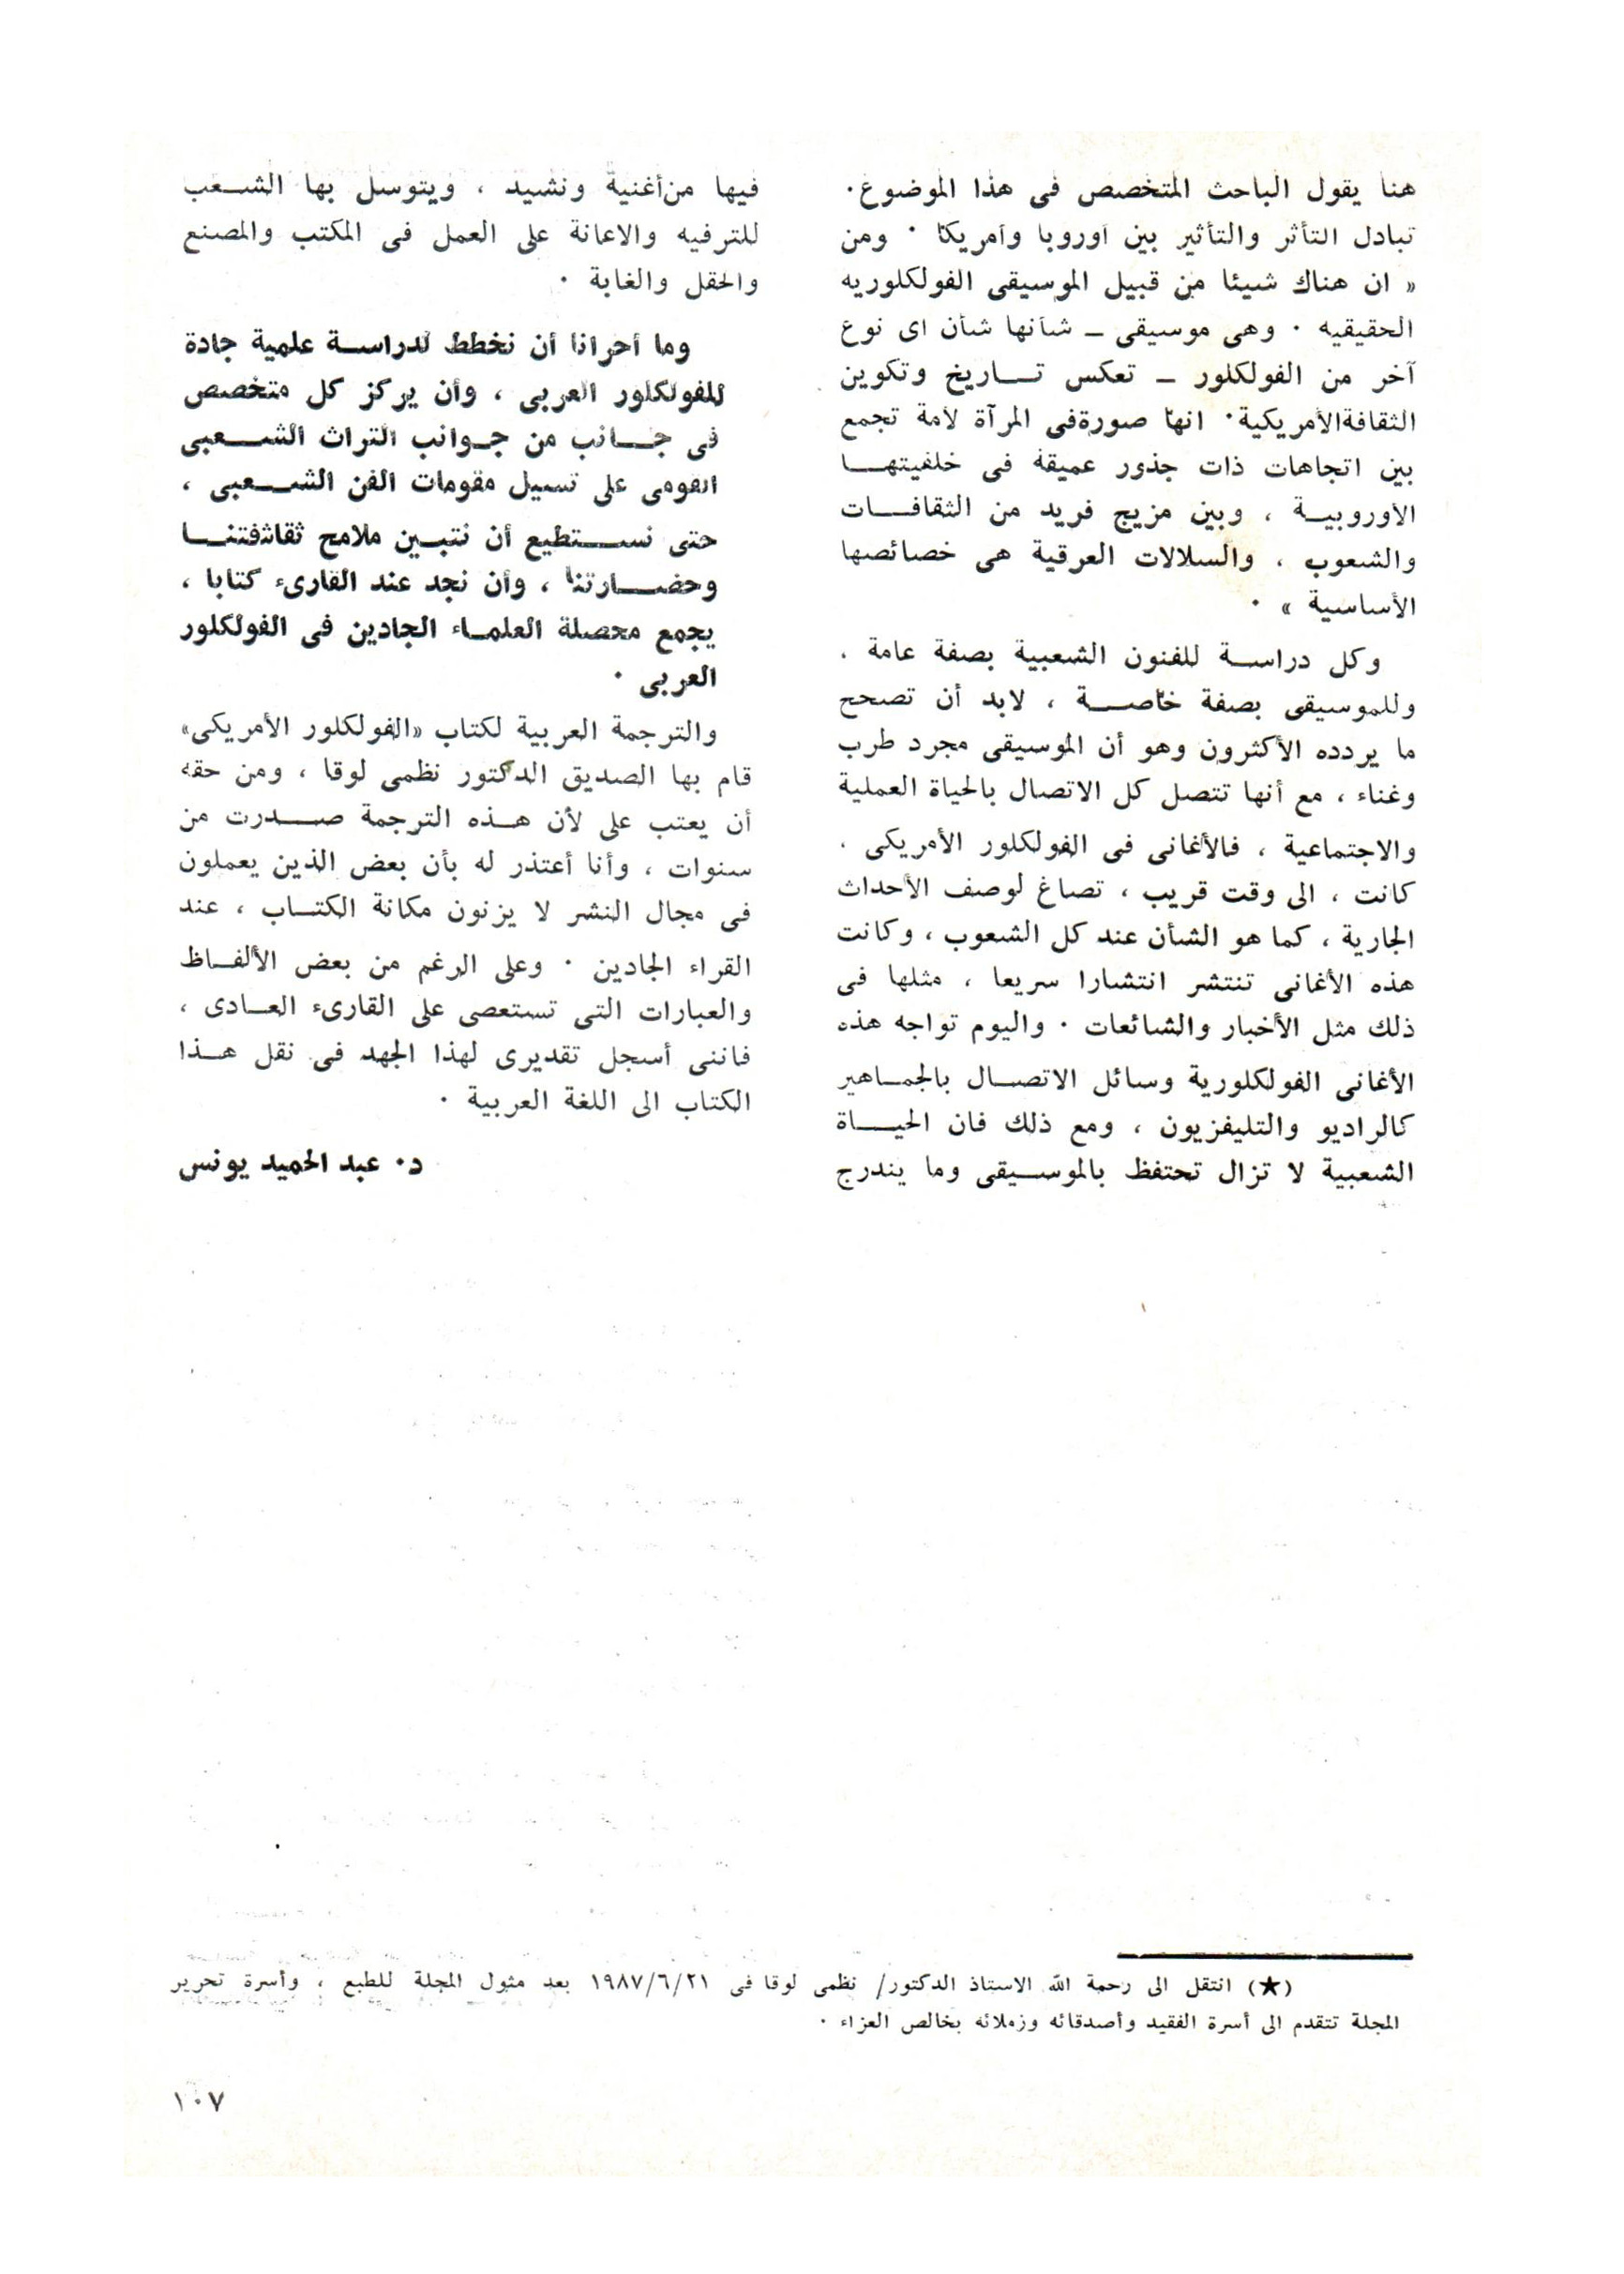 هنا يقول الباحث المتخصص فى هذا الموضوع.
تبادل التأثر والتأثير بين أوروبا وأمريكا ٠ ومن
« ان هناك شيئا من قبيل الموسيقى الفولكلوريه
الحقيقيه ٠ وهى موسيقى ــ شأنها شأن اى نوع
آخر من الفولكلور ــ تعكس تاريخ وتكوين
الثقافة الأمريكية٠ انها صورة فى المرآة لأمة تجمع
بين اتجاهات ذات جذور عميقة فى خلفيتها
الأوروبية ، وبين مزيج فريد من الثقافات
والشعوب ، والسلالات العرقية هى خصائصها
الأساسية » ٠
وكل دراسة للفنون الشعبية بصفة عامة ،
وللموسيقى بصفة خاصة ، لابد أن تصحح
ما يردده الأكثرون وهو أن الموسيقى مجرد طرب
وغناء ، مع أنها تتصل كل الاتصال بالحياة العملية
والاجتماعية ، فالأغانى فى الفولكلور الأمريكى ،
كانت ، الى وقت قريب ، تصاغ لوصف الأحداث
الجارية ، كما هو الشأن عند كل الشعوب ، وكانت
هذه الأغانى تنتشر انتشارا سريعا ، مثلها فى
ذلك مثل الأخبار والشائعات ٠ واليوم تواجه هذه
الأغانى الفولكلورية وسائل الاتصال بالجماهير
كالراديو والتليفزيون ، ومع ذلك فان الحياة
الشعبية لا تزال تحتفظ بالموسيقى وما يندرج
فيها من أغنية ونشيد ، ويتوسل بها الشعب
للترفيه والاعانة على العمل فى المكتب والمصنع
والحقل والغابة ٠
وما أحرانا أن نخطط لدراسة علمية جادة
للفولكلور العربى ، وأن يركز كل متخصص
فى جانب من جوانب التراث الشعبى
القومى على تسيل مقومات الفن الشعبى ،
حتى نستطيع أن نتبين ملامح ثقاثفتنا
وحضارتنا ، وأن نجد عند القارىء كتابا ،
يجمع محصلة العلماء الجادين فى الفولكلور
العربى ٠
والترجمة العربية لكتاب «الفولكلور الأمريكى»
قام بها الصديق الدكتور نظمى لوقا ، ومن حقه
أن يعتب على لأن هذه الترجمة صدرت من
سنوات ، وأنا أعتذر له بأن بعض الذين يعملون
فى مجال النشر لا يزنون مكانة الكتاب ، عند
القراء الجادين ٠ وعلى الرغم من بعض الألفاظ
والعبارات التى تستعصى على القارىء العادى ،
فاننى أسجل تقديرى لهذا الجهد فى نقل هذا
الكتاب الى اللغة العربية ٠
د٠ عبد الحميد يونس
(★) انتقل الى رحمة الله الاستاذ الدكتور/ نظمى لوقا فى ١٩٨٧/٦/٢١ بعد مثول المجلة للطبع ، وأسرة تحرير
المجلة تتقدم الى أسرة الفقيد وأصدقائه وزملائه بخالص العزاء ٠
١٠٧